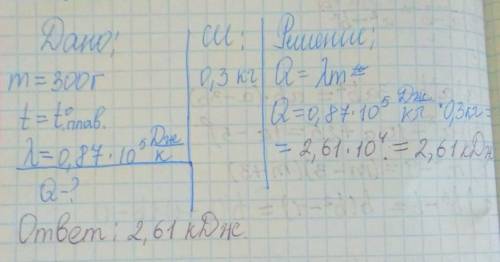 Дано:
m = 300г
t = t°плав.
λ = 0,87 · 10⁵ Дж/к
Q - ?
СИ:
0,3 кг
Решение:
Q = λm =
Q = 0,87 · 10⁵ Дж/кг · 0,3кг =
= 2,61 · 10⁴ = 2,61 кДж
Ответ: 2,61 кДж.